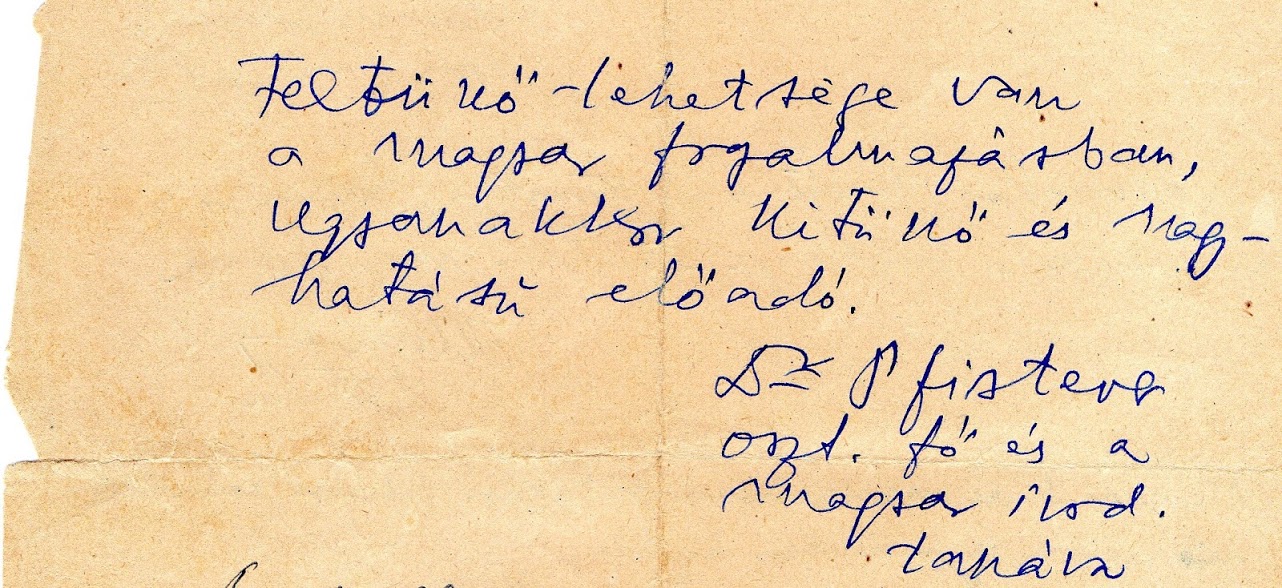 Feltűnő-lehetsége van
a magyar fogalmazásban,
ugyanakkor kitűnő és nagy-
hatású előadó.
Dr Pfisterer
oszt. fő és a
magyar irod.
tanára